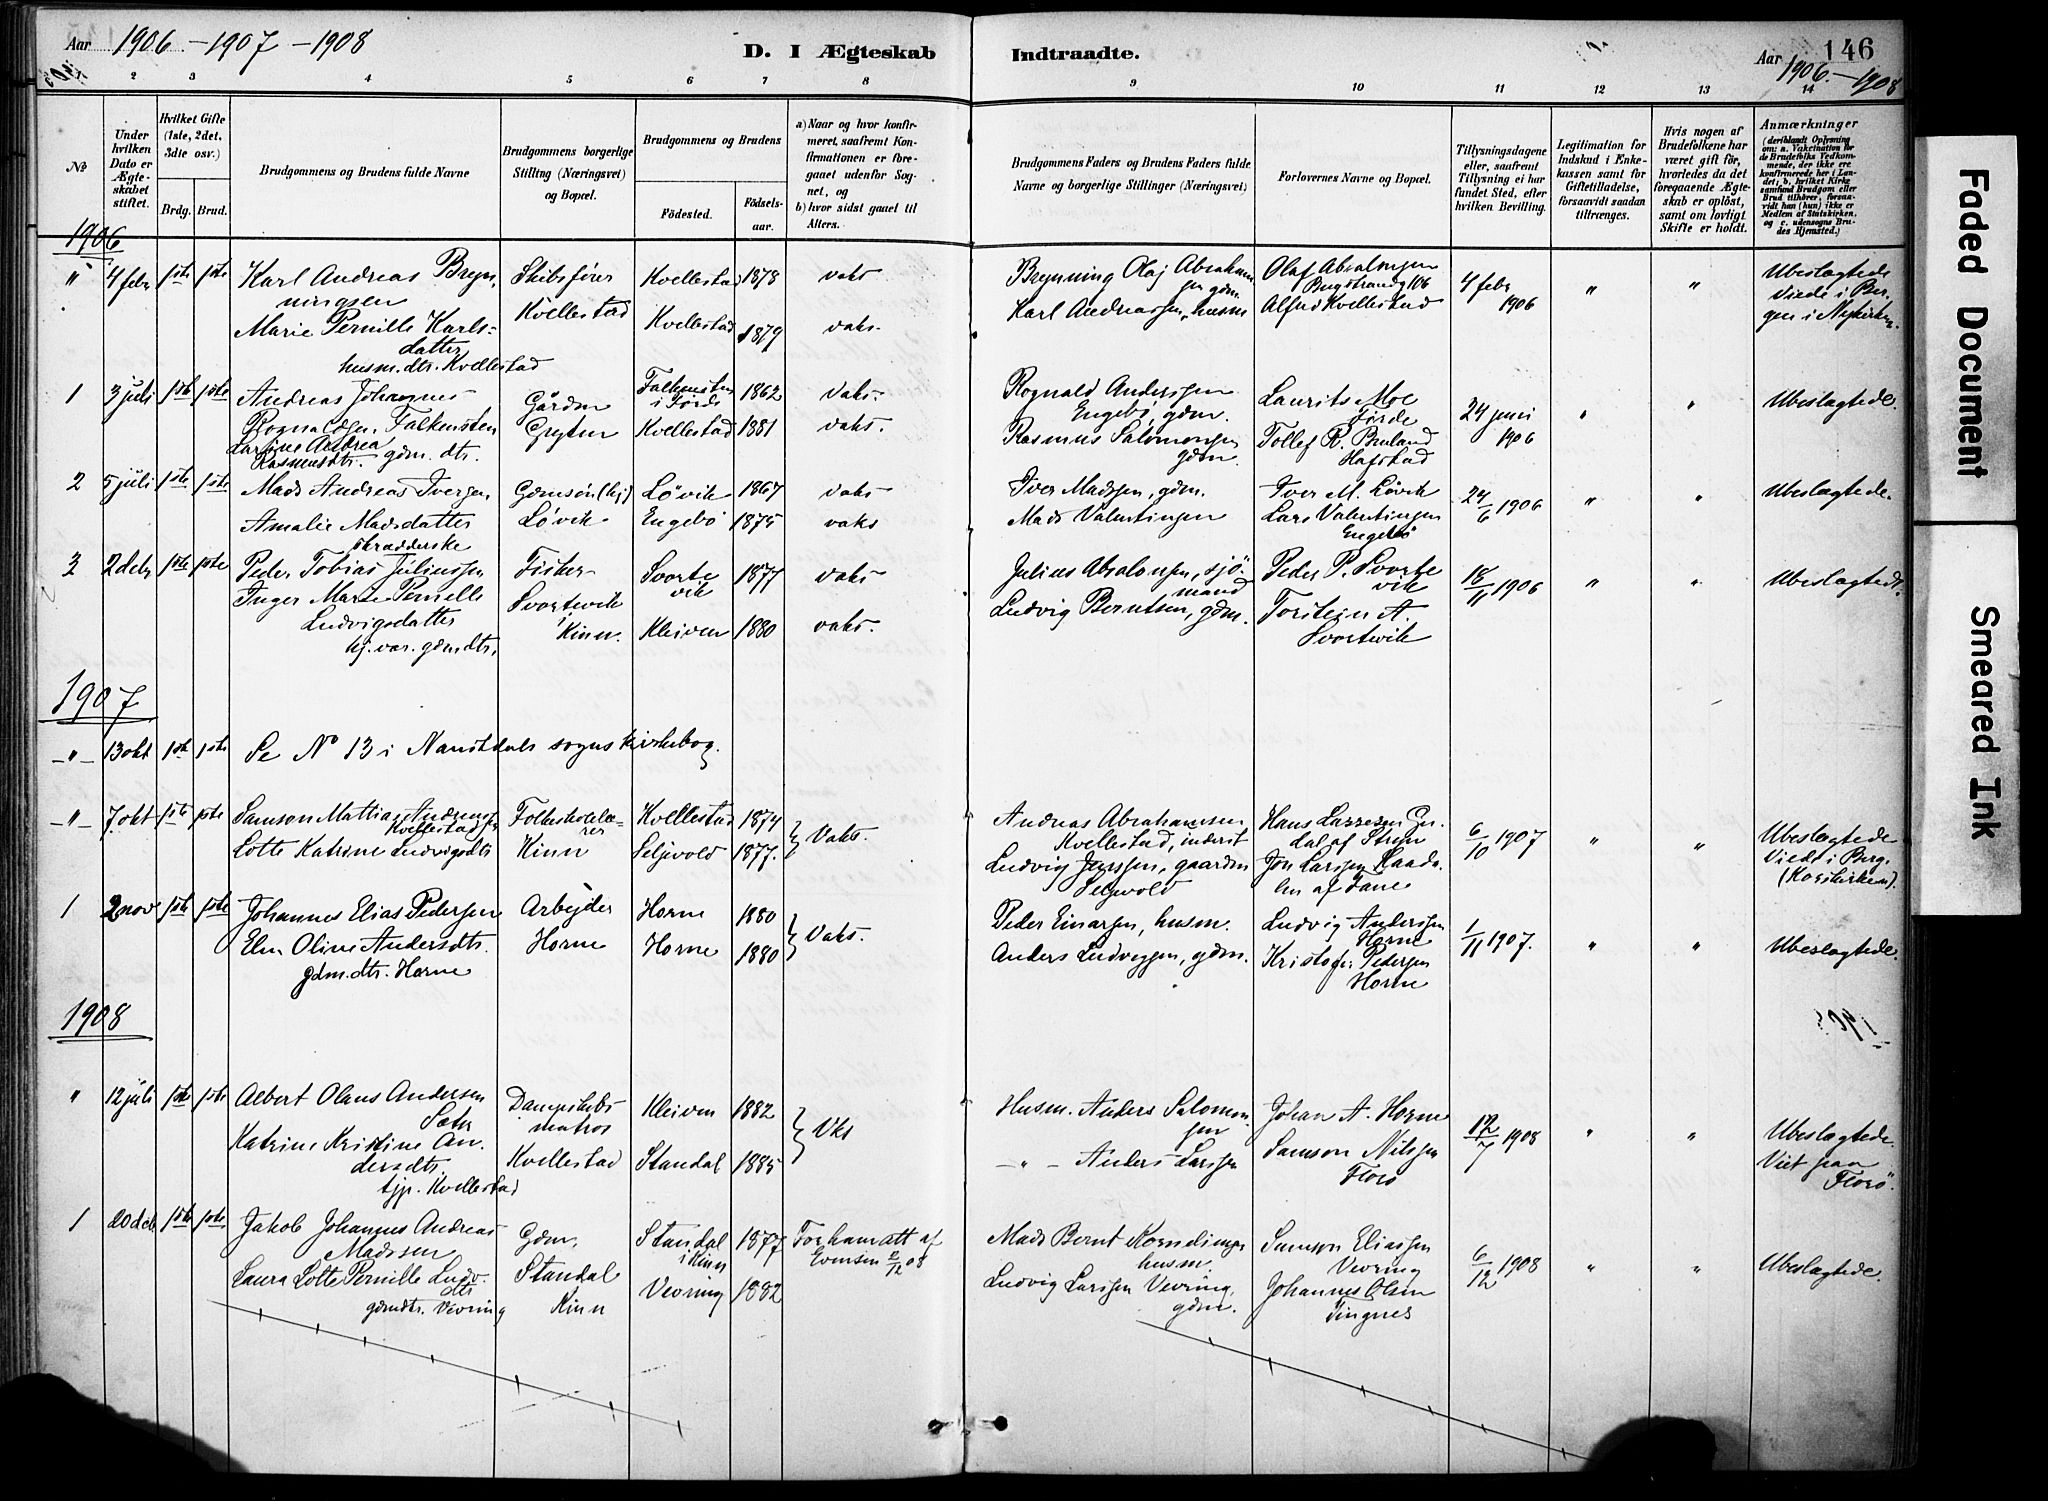 Aar 1906 - 1907 - 1908
D. I Ægteskab Indtraadte.
Aar 1906. - 1908
146
2 3 4 5 6 7 8 9 10 11 12 13 14
№
Under hvilken Dato er Ægteskabet stiftet.
Hvilket Gifte (1ste, 2det, 3die osv.)
Brdg. Brud.
Brudgommens og Brudens fulde Navne
Brudgommens borgerlige Stilling (Næringsvei) og Bopæl.
Brudgommens og Brudens
Fødested. Fødselsaar.
a) Naar og hvor konfirmeret, saafremt Konfirmationen er foregaaet udenfor Sognet, og
b) hvor sidst gaaet til Alters.
Brudgommens Faders og Brudens Faders fulde Navne og borgerlige Stillinger (Næringsvei)
Forlovernes Navne og Bopæl.
Tillysningsdagene eller, saafremt Tillysning ei har fundet Sted, efter hvilken Bevilling.
Legitimation for Indskud i Enkekassen samt for Giftetilladelse, forsaavidt saadan tiltrænges.
Hvis nogen af Brudefolkene har været gift før, hvorledes da det foregaaende Ægteskab er opløst, samt om lovligt Skifte er holdt.
Anmærkninger
(deriblandt Oplysning om: a. Vakcination for de Brudefolks Vedkommende, der ikke ere konfirmerede her i Landet; b. hvilket Kirkesamfund Brudgom eller Brud tilhører, forsaavidt han (hun) ikke er Medlem af Statskirken, og c. udensogns Brudes Hjemsted.)
1906
" 4 febr 1ste 1ste Karl Andreas Brynningsen Skibsfører Kvellestad Kvellestad 1878 vaks
Marie Pernille Karlsdatter husm. dtr. Kvellestad Kvellestad 1879 vaks.
Brynning Olaj Abrahamsen gdm.
Karl Andreassen, husm
Olaf Absalonsen
Alfred Kvellestad
4 febr 1906 " "
Ubeslægtede Viede i Bergen i Nykirken.
1 3 juli 1ste 1ste Andreas Johannes Rognaldsen Falkensten Gårdm Falkensten i Førde 1862 vaks.
Larsine Andrea Rasmusdtr. gdm. dtr. Kvellestad 1881 vaks.
Rognald Anderssen Engebø, gdm.
Rasmus Salomonsen gdm.
Laurits Moe Førde
Tollef R. Bruland Hafstad
24 juni 1906 " "
Ubeslægtede.
2 5 juli 1ste 1ste Mads Andreas Iversen Gdmsøn (hj) Løvik Løvik 1867 vaks
Amalie Madsdatter skrædderske Engebø 1875 vaks
Iver Madssen, gdm.
Mads Valentinsen
Iver M. Løvik
Lars Valentinsen Engebø
24/6 1906 " "
Ubeslægtede.
3 2 debr 1ste 1ste Peder Tobias Juliussen Fisker Svortevik i Kinn. Svortevik 1877 vaks
Inger Marie Pernelle Ludvigsdatter hj. var. gdm. dtr. Kleiven 1880 vaks.
Julius Absalonsen, sjømand
Ludvig Berntsen, gdm.
Peder P. Svortevik
Torstein A. Svortevik
18/11 1906 " "
Ubeslægtede.
1907
-"- 13 okt 1ste 1ste Se No 13 i Naustdals sogns kirkebog.
-"- 7. okt 1ste 1ste Samson Mattias Andreassen Kvellestad Folkeskolelærer Kinn Kvellestad 1874
Lotte Katrine Ludvigsdtr Seljevold 1877. Vaks.
Andreas Abrahamsen Kvellestad, inderst
Ludvig Jenssen, gaardm Seljevold
Hans Lassesen Gredal af Stryn
Jon Larssen af Fane
6/10 1907 " "
Ubeslægtede Viedt i Berg. (Korskirken).
1 2 nov 1ste 1ste Johannes Elias Pedersen Arbejder Horne Horne 1880
Elen Oline Andersdtr. gdm. dtr. Horne Horne 1880 Vaks.
Peder Einarsen, husm.
Anders Ludvigsen, gdm.
Ludvig Anderssen Horne
Kristofer Pedersen Horne
1/11 1907. " "
Ubeslægtede.
1908
" 12 juli 1ste 1ste Albert Olaus Andersen Sæter Dampskibsmatros Kvellestad Kleiven 1882
Katrine Kristine Andersdtr. tjp. Kvellestad Standal 1885 Vks
Husm. Anders Salomonsen
-"- Anders Larssen
Johan A. Horne
Samson Nilssen Florø
12/7 1908 " "
Ubeslægtede. Viet paa Florø.
1 20 deb 1ste 1ste Jakob Johannes Andreas Madssen Gdm. Standal Kinn Standal i Kinn 1877
Laura Lotte Pernille Ludv.dtr gdmdtr. Vevring Vevring 1882
12/08
Mads Bernt Korneliussen husm.
Ludvig Larssen Vevring, gdm.
Samson Eliassen Vevring
Johannes Olsen Tingnes
6/12 1908 " "
Ubeslægtede.
Faded Document
Smeared Ink